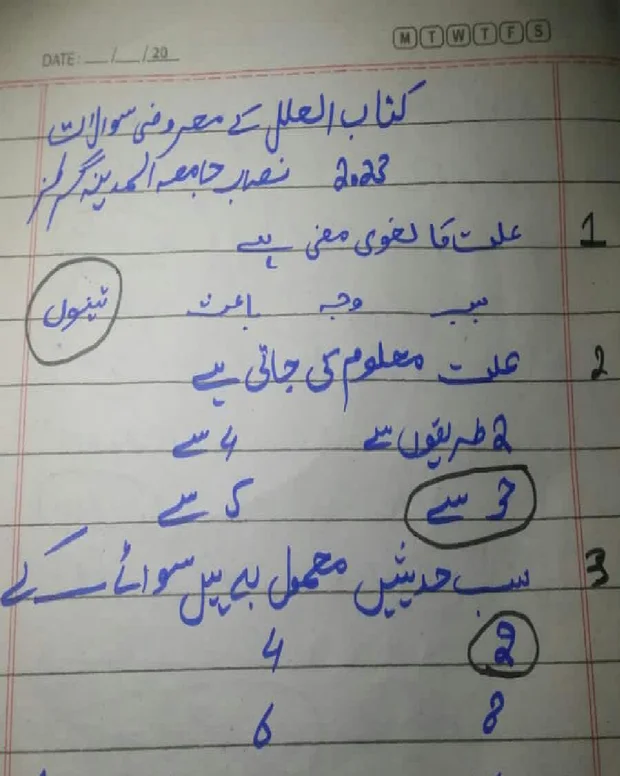 M T W T F S
DATE: __/__/20__
کتاب العلل کے معروضی سوالات
2023 نصاب جامعۃ المدینہ گرلز
1 علت کا لغوی معنی ہے
سبب وجہ باعث تینوں
2 علت معلوم کی جاتی ہے
2 طریقوں سے 4 سے
3 سے 5 سے
3 سب حدیثیں معمول بہ ہیں سوائے کے
2 4
8 6